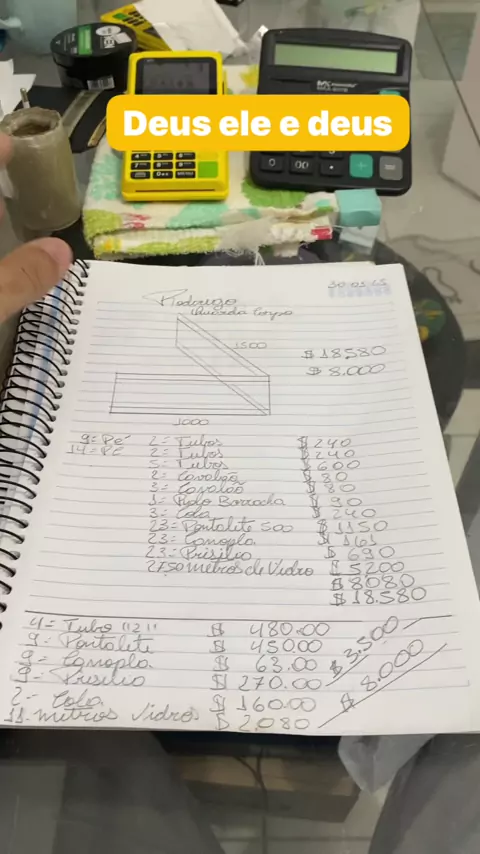 Deus ele e deus
Rodrigo
Guarda Corpo
1500
$ 18580
$ 8.000
1000
9 = Pé 2 = Tubos $ 240
14 = Pé 2 = Tubos $ 240
5 = Tubos $ 600
2 = $ 80
3 = $ 80
1 = Rolo Borracha $ 90
3 = Cola $ 240
23 = Pontalite 500 $ 1150
23 = Canopla $ 161
23 = Prisilio $ 690
27,50 metros de Vidro $ 5200
$ 8080
$ 18.580
4 = Tubo "2" $ 480.00
9 = Pontalite $ 450.00
9 = Canopla $ 63.00
9 = Prisilio $ 270.00
2 = Cola $ 160.00
11 metros Vidros $ 2,080
$ 3,500
$ 8.000